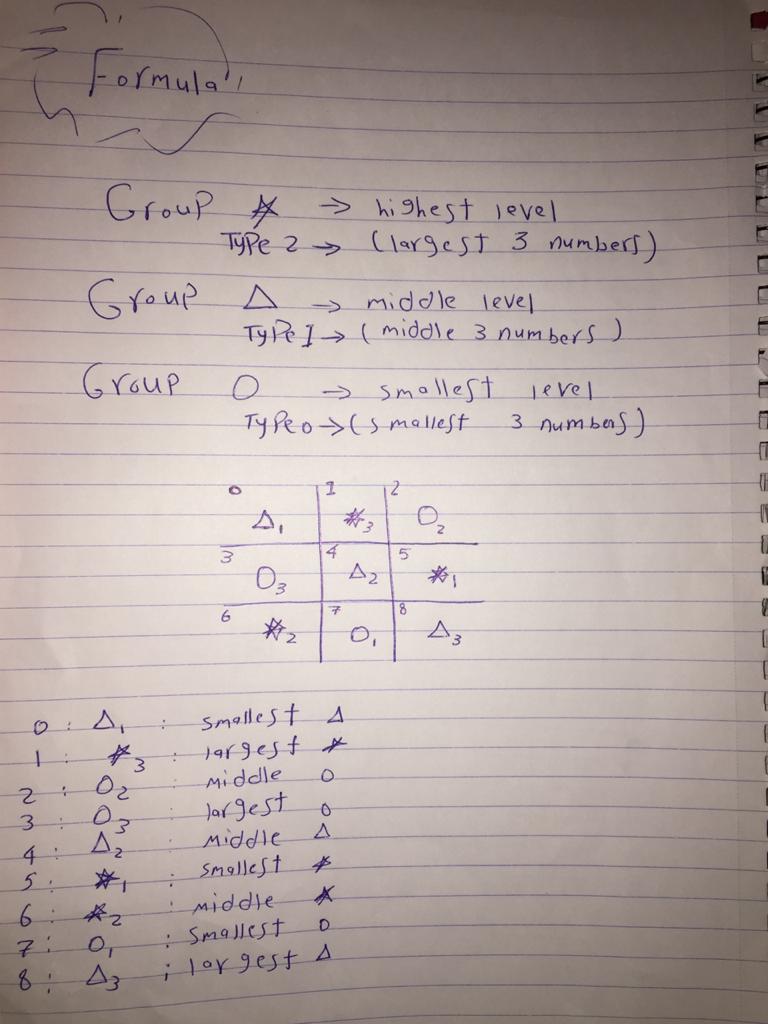 Formula
Group ☆ → highest level
Type 2 → (largest 3 numbers)
Group △ → middle level
Type 1 → (middle 3 numbers)
Group O → smallest level
Type 0 → (smallest 3 numbers)
0 1 2
△1 ☆3 O2
3 4 5
O3 △2 ☆1
6 7 8
☆2 O1 △3
0 : △1 : smallest △
1 : ☆3 : largest ☆
2 : O2 : middle O
3 : O3 : largest O
4 : △2 : middle △
5 : ☆1 : smallest ☆
6 : ☆2 : middle ☆
7 : O1 : smallest O
8 : △3 : largest △